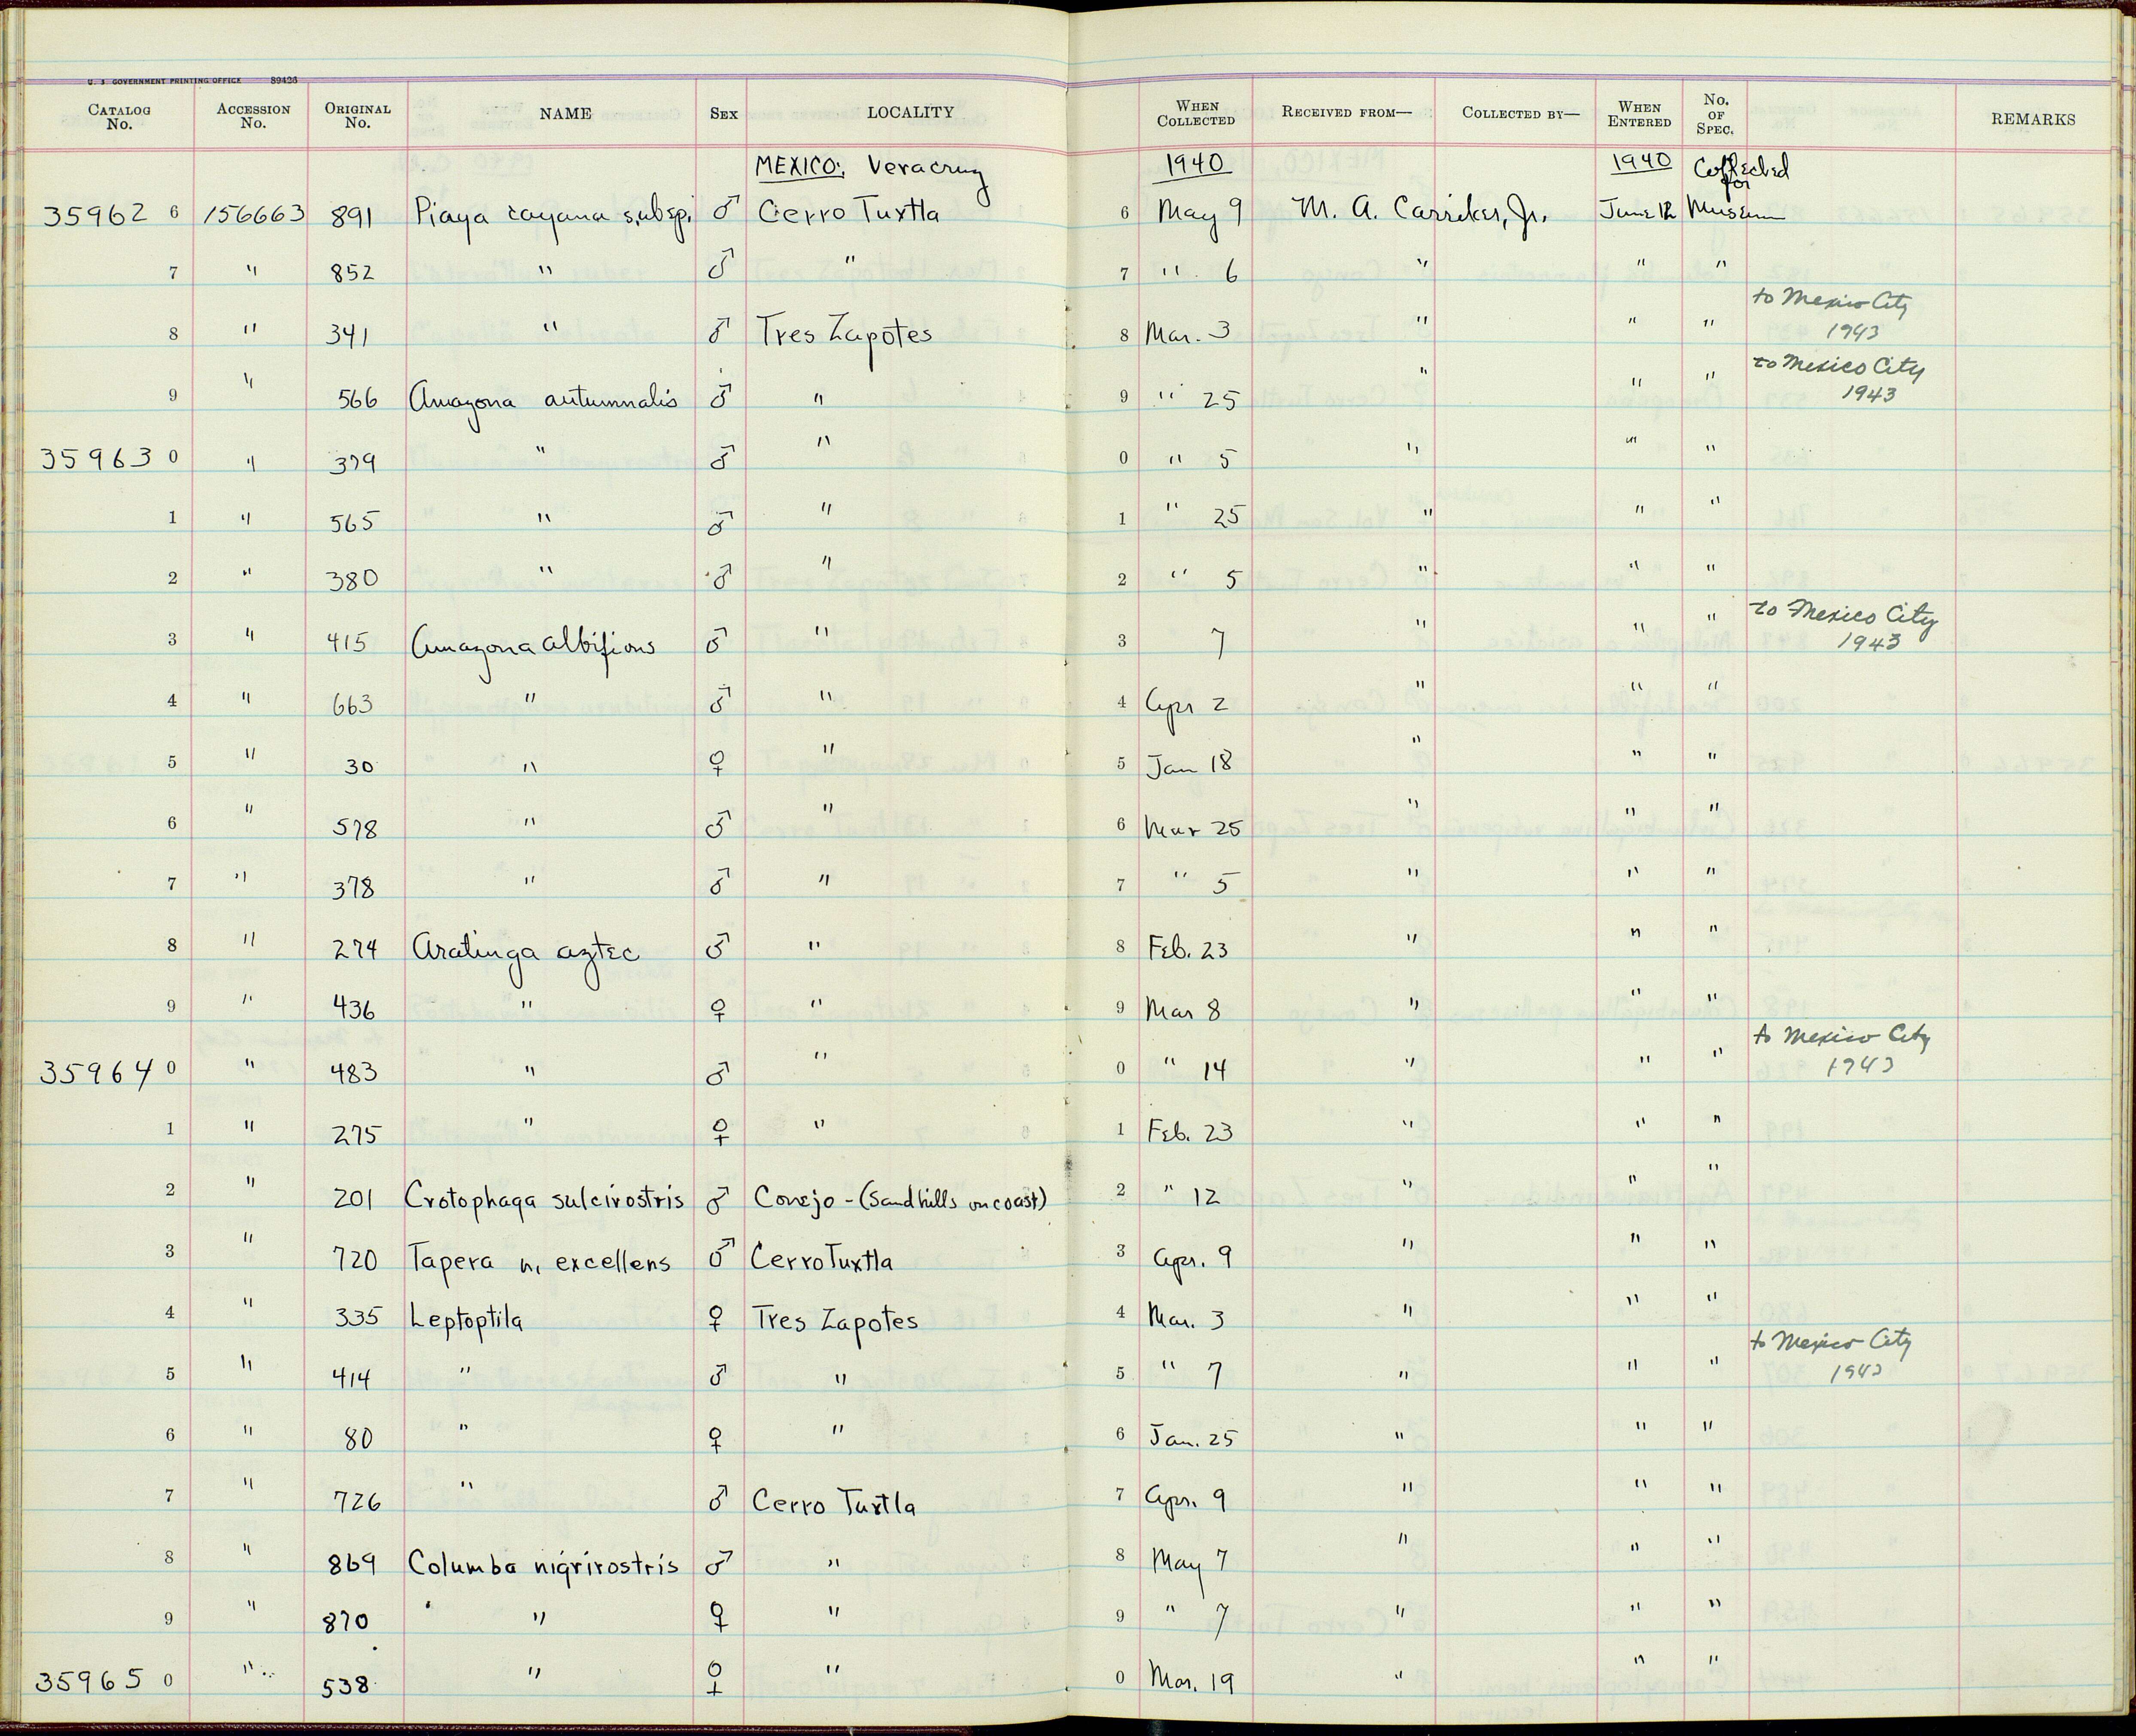 U. S. GOVERNMENT PRINTING OFFICE 89426
CATALOG No. ACCESSION No. ORIGINAL No. NAME SEX LOCALITY WHEN COLLECTED RECEIVED FROM— COLLECTED BY— WHEN ENTERED No. OF SPEC. REMARKS
MEXICO: Veracruz 1940 1940 Collected for
35962 6 156663 891 Piaya cayana subsp. ♂ Cerro Tuxtla 6 May 9 M. A. Carriker, Jr. June 12 Museum
7 " 852 " ♂ " 7 " 6 " " "
8 " 341 " ♂ Tres Zapotes 8 Mar. 3 " " " to Mexico City 1943
9 " 566 Amazona autumnalis ♂ " 9 " 25 " " " to Mexico City 1943
35963 0 " 379 " ♂ " 0 " 5 " " "
1 " 565 " ♂ " 1 " 25 " " "
2 " 380 " ♂ " 2 " 5 " " "
3 " 415 Amazona albifrons ♂ " 3 7 " " " to Mexico City 1943
4 " 663 " ♂ " 4 Apr 2 " " "
5 " 30 " ♀ " 5 Jan 18 " " "
6 " 578 " ♂ " 6 Mar 25 " " "
7 " 378 " ♂ " 7 " 5 " " "
8 " 274 Aratinga aztec ♂ " 8 Feb. 23 " " "
9 " 436 " ♀ " 9 Mar 8 " " "
35964 0 " 483 " ♂ " 0 " 14 " " " to Mexico City 1943
1 " 275 " ♀ " 1 Feb. 23 " " "
2 " 201 Crotophaga sulcirostris ♂ Conejo - (Sandhills on coast) 2 " 12 " " "
3 " 720 Tapera n. excellens ♂ Cerro Tuxtla 3 Apr. 9 " " "
4 " 335 Leptoptila ♀ Tres Zapotes 4 Mar. 3 " " "
5 " 414 " ♂ " 5 " 7 " " " to Mexico City 1943
6 " 80 " ♀ " 6 Jan. 25 " " "
7 " 726 " ♂ Cerro Tuxtla 7 Apr. 9 " " "
8 " 869 Columba nigrirostris ♂ " 8 May 7 " " "
9 " 870 " ♀ " 9 " 7 " " "
35965 0 " 538 " ♀ " 0 Mar. 19 " " "